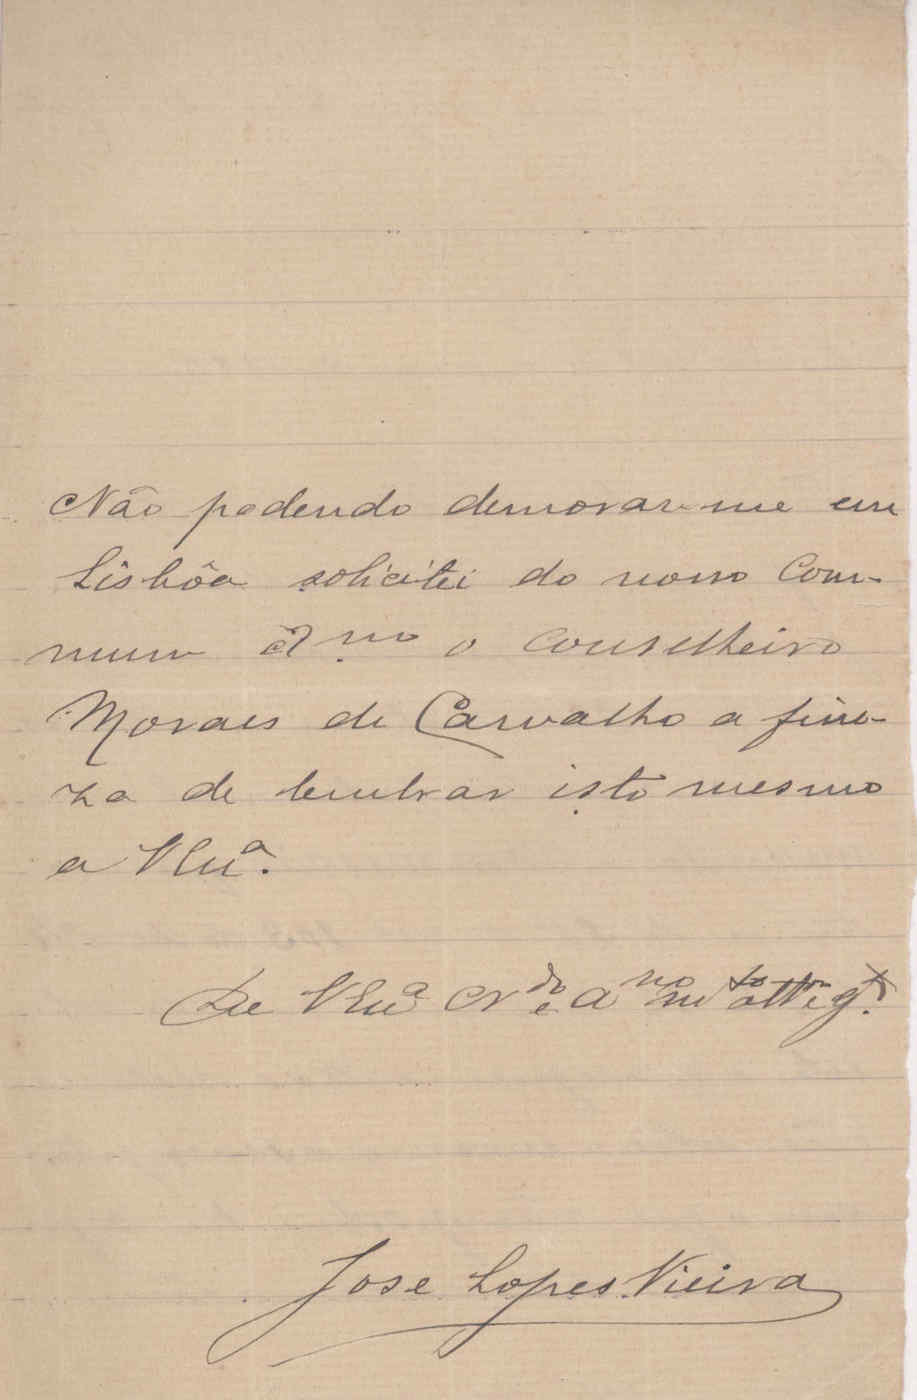 Não podendo demorar-me em
Lisbôa solicitei do nosso Com-
mum Amo o Conselheiro
Moraes de Carvalho a fine-
za de lembrar isto mesmo
a VExa.
De VExa Cr.do e Amo mto atto e
Jose Lopes Vieira